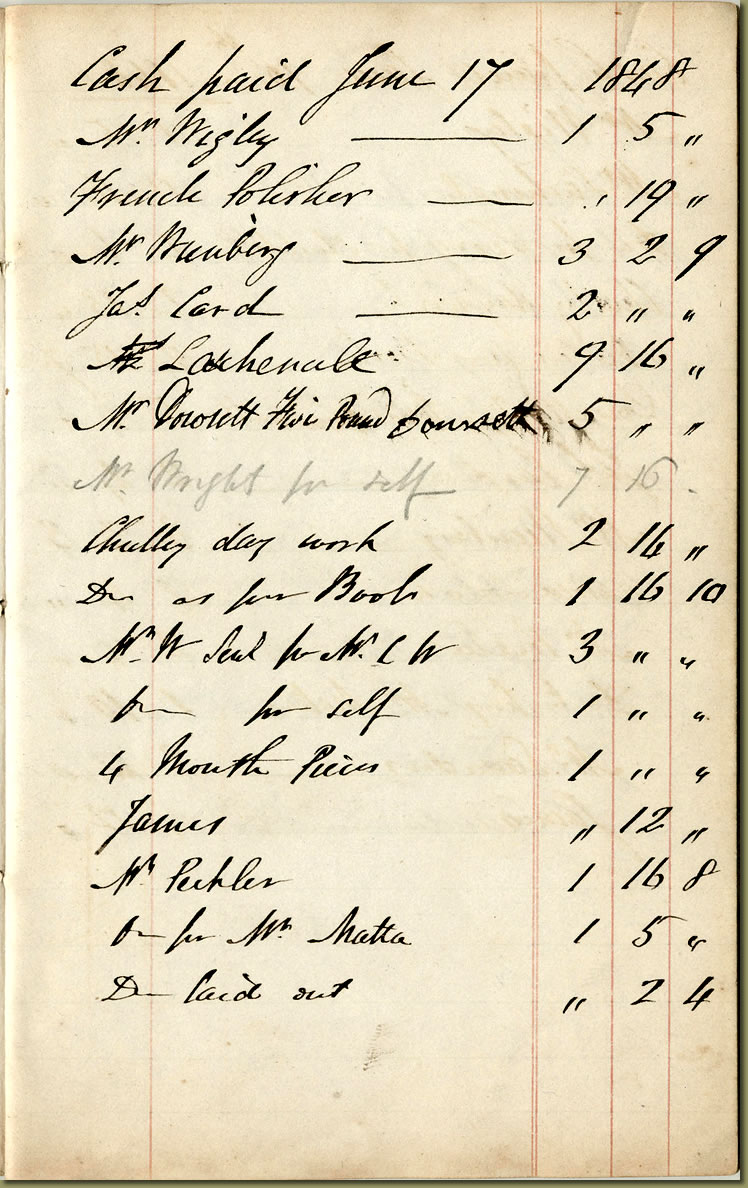 Cash paid June 17 1848
Mr Wigby 1 5 "
French Polisher " 19 "
Mr 3 2 9
Jas Card 2 " "
Lachenal 9 16 "
Mr Dowsett Five Pound 5 " "
Mr Wright for self 7 16 -
Chulley day work 2 14 "
Do as per Book 1 16 10
Mr W for Mr C W 3 " "
Do for self 1 " "
4 Mouth Pieces 1 " "
James " 12 "
Mr 1 16 8
Do for Mr Matta 1 5 "
Do laid out " 2 4